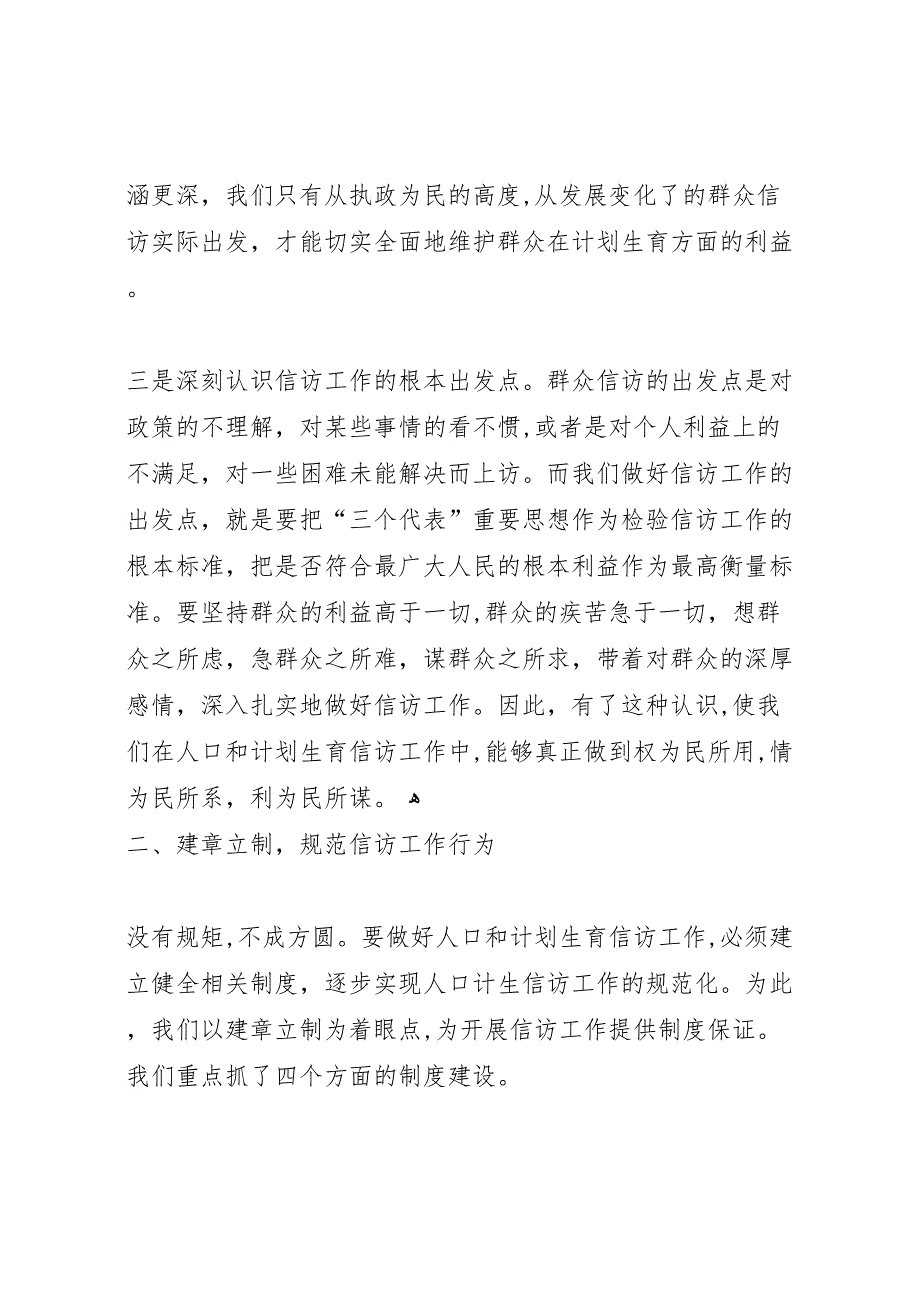 涵更深，我们只有从执政为民的高度,从发展变化了的群众信
访实际出发，才能切实全面地维护群众在计划生育方面的利益
。
三是深刻认识信访工作的根本出发点。群众信访的出发点是对
政策的不理解，对某些事情的看不惯,或者是对个人利益上的
不满足，对一些困难未能解决而上访。而我们做好信访工作的
出发点，就是要把“三个代表”重要思想作为检验信访工作的
根本标准，把是否符合最广大人民的根本利益作为最高衡量标
准。要坚持群众的利益高于一切,群众的疾苦急于一切，想群
众之所虑，急群众之所难，谋群众之所求，带着对群众的深厚
感情，深入扎实地做好信访工作。因此，有了这种认识,使我
们在人口和计划生育信访工作中,能够真正做到权为民所用,情
为民所系，利为民所谋。 ﻫ
二、建章立制，规范信访工作行为
没有规矩,不成方圆。要做好人口和计划生育信访工作,必须建
立健全相关制度，逐步实现人口计生信访工作的规范化。为此
，我们以建章立制为着眼点,为开展信访工作提供制度保证。
我们重点抓了四个方面的制度建设。